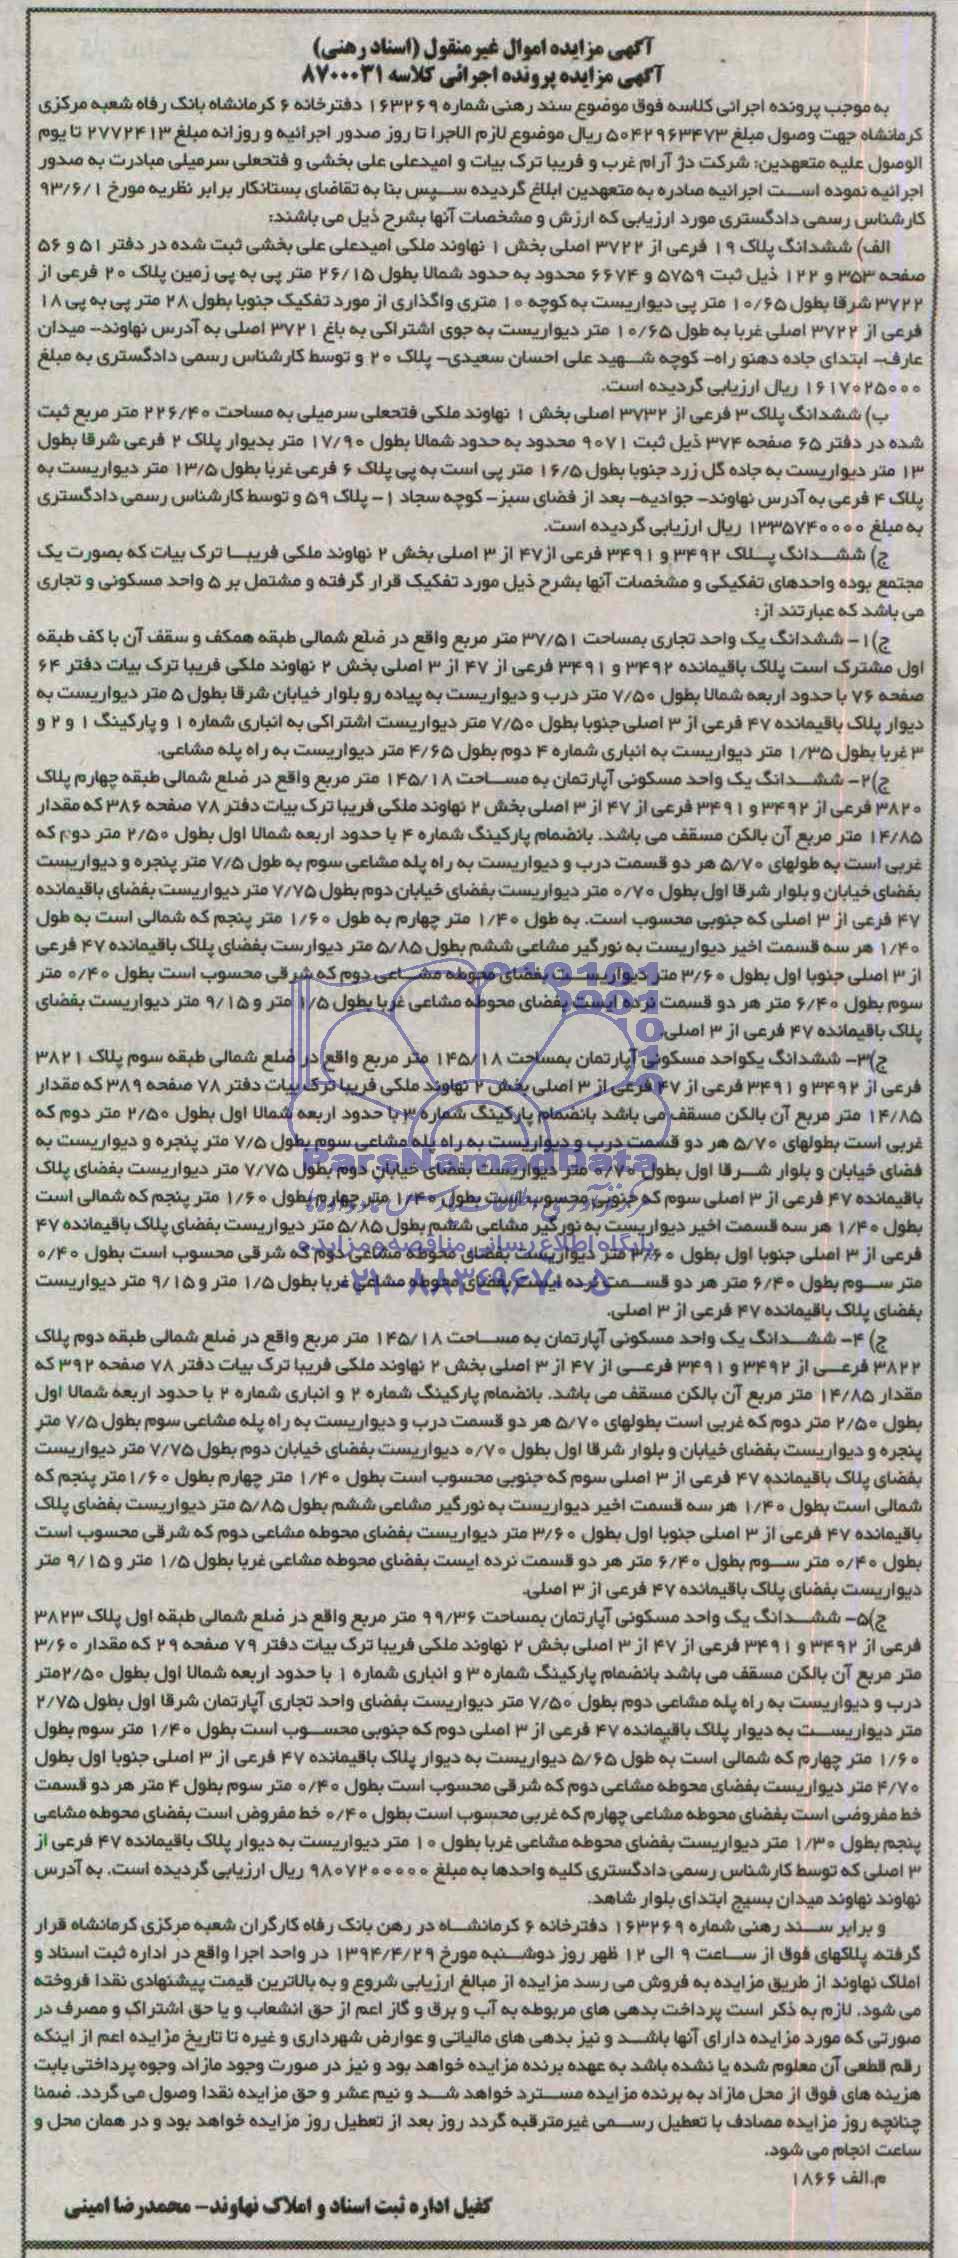 آگهی مزایده اموال غیرمنقول (اسناد رهنی)
آگهی مزایده پرونده اجرائی کلاسه ۸۷۰۰۰۳۱
به موجب پرونده اجرائی کلاسه فوق موضوع سند رهنی شماره ۱۶۳۲۶۹ دفترخانه ۶ کرمانشاه بانک رفاه شعبه مرکزی
کرمانشاه جهت وصول مبلغ ۵۰۴۲۹۶۳۴۷۳ ریال موضوع لازم الاجرا تا روز صدور اجرائیه و روزانه مبلغ ۲۷۷۲۴۱۳ تا یوم
الوصول علیه متعهدین: شرکت دژ آرام غرب و فریبا ترک بیات و امیدعلی علی بخشی و فتحعلی سرمیلی مبادرت به صدور
اجرائیه نموده است اجرائیه صادره به متعهدین ابلاغ گردیده سپس بنا به تقاضای بستانکار برابر نظریه مورخ ۹۳/۶/۱
کارشناس رسمی دادگستری مورد ارزیابی که ارزش و مشخصات آنها بشرح ذیل می باشند:
الف) ششدانگ پلاک ۱۹ فرعی از ۳۷۲۲ اصلی بخش ۱ نهاوند ملکی امیدعلی علی بخشی ثبت شده در دفتر ۵۱ و ۵۶
صفحه ۳۵۳ و ۱۲۲ ذیل ثبت ۵۷۵۹ و ۶۶۷۴ محدود به حدود شمالا بطول ۲۶/۱۵ متر پی به پی زمین پلاک ۲۰ فرعی از
۳۷۲۲ شرقا بطول ۱۰/۶۵ متر پی دیواریست به کوچه ۱۰ متری واگذاری از مورد تفکیک جنوبا بطول ۲۸ متر پی به پی ۱۸
فرعی از ۳۷۲۲ اصلی غربا به طول ۱۰/۶۵ متر دیواریست به جوی اشتراکی به باغ ۳۷۲۱ اصلی به آدرس نهاوند- میدان
عارف- ابتدای جاده دهنو راه- کوچه شهید علی احسان سعیدی- پلاک ۲۰ و توسط کارشناس رسمی دادگستری به مبلغ
۱۶۱۷۰۲۵۰۰۰ ریال ارزیابی گردیده است.
ب) ششدانگ پلاک ۳ فرعی از ۳۷۳۲ اصلی بخش ۱ نهاوند ملکی فتحعلی سرمیلی به مساحت ۲۲۶/۴۰ متر مربع ثبت
شده در دفتر ۶۵ صفحه ۳۷۴ ذیل ثبت ۹۰۷۱ محدود به حدود شمالا بطول ۱۷/۹۰ متر بدیوار پلاک ۲ فرعی شرقا بطول
۱۳ متر دیواریست به جاده گل زرد جنوبا بطول ۱۶/۵ متر پی است به پی پلاک ۶ فرعی غربا بطول ۱۳/۵ متر دیواریست به
پلاک ۴ فرعی به آدرس نهاوند- جوادیه- بعد از فضای سبز- کوچه سجاد ۱- پلاک ۵۹ و توسط کارشناس رسمی دادگستری
به مبلغ ۱۳۳۵۷۴۰۰۰۰ ریال ارزیابی گردیده است.
ج) ششدانگ پلاک ۳۴۹۲ و ۳۴۹۱ فرعی از۴۷ از ۳ اصلی بخش ۲ نهاوند ملکی فریبا ترک بیات که بصورت یک
مجتمع بوده واحدهای تفکیکی و مشخصات آنها بشرح ذیل مورد تفکیک قرار گرفته و مشتمل بر ۵ واحد مسکونی و تجاری
می باشد که عبارتند از:
ج)۱- ششدانگ یک واحد تجاری بمساحت ۳۷/۵۱ متر مربع واقع در ضلع شمالی طبقه همکف و سقف آن با کف طبقه
اول مشترک است پلاک باقیمانده ۳۴۹۲ و ۳۴۹۱ فرعی از ۴۷ از ۳ اصلی بخش ۲ نهاوند ملکی فریبا ترک بیات دفتر ۶۴
صفحه ۷۶ با حدود اربعه شمالا بطول ۷/۵۰ متر درب و دیواریست به پیاده رو بلوار خیابان شرقا بطول ۵ متر دیواریست به
دیوار پلاک باقیمانده ۴۷ فرعی از ۳ اصلی جنوبا بطول ۷/۵۰ متر دیواریست اشتراکی به انباری شماره ۱ و پارکینگ ۱ و ۲ و
۳ غربا بطول ۱/۳۵ متر دیواریست به انباری شماره ۴ دوم بطول ۴/۶۵ متر دیواریست به راه پله مشاعی.
ج)۲- ششدانگ یک واحد مسکونی آپارتمان به مساحت ۱۴۵/۱۸ متر مربع واقع در ضلع شمالی طبقه چهارم پلاک
۳۸۲۰ فرعی از ۳۴۹۲ و ۳۴۹۱ فرعی از ۴۷ از ۳ اصلی بخش ۲ نهاوند ملکی فریبا ترک بیات دفتر ۷۸ صفحه ۳۸۶ که مقدار
۱۴/۸۵ متر مربع آن بالکن مسقف می باشد. بانضمام پارکینگ شماره ۴ با حدود اربعه شمالا اول بطول ۲/۵۰ متر دوم که
غربی است به طولهای ۵/۷۰ هر دو قسمت درب و دیواریست به راه پله مشاعی سوم به طول ۷/۵ متر پنجره و دیواریست
بفضای خیابان و بلوار شرقا اول بطول ۰/۷۰ متر دیواریست بفضای خیابان دوم بطول ۷/۷۵ متر دیواریست بفضای باقیمانده
۴۷ فرعی از ۳ اصلی که جنوبی محسوب است. به طول ۱/۴۰ متر چهارم به طول ۱/۶۰ متر پنجم که شمالی است به طول
۱/۴۰ هر سه قسمت اخیر دیواریست به نورگیر مشاعی ششم بطول ۵/۸۵ متر دیوارست بفضای پلاک باقیمانده ۴۷ فرعی
از ۳ اصلی جنوبا اول بطول ۳/۶۰ متر دیواریست بفضای محوطه مشاعی دوم که شرقی محسوب است بطول ۰/۴۰ متر
سوم بطول ۶/۴۰ متر هر دو قسمت نرده ایست بفضای محوطه مشاعی غربا بطول ۱/۵ متر و ۹/۱۵ متر دیواریست بفضای
پلاک باقیمانده ۴۷ فرعی از ۳ اصلی.
ج)۳- ششدانگ یکواحد مسکونی آپارتمان بمساحت ۱۴۵/۱۸ متر مربع واقع در ضلع شمالی طبقه سوم پلاک ۳۸۲۱
فرعی از ۳۴۹۲ و ۳۴۹۱ فرعی از ۴۷ فرعی از ۳ اصلی بخش ۲ نهاوند ملکی فریبا ترک بیات دفتر ۷۸ صفحه ۳۸۹ که مقدار
۱۴/۸۵ متر مربع آن بالکن مسقف می باشد بانضمام پارکینگ شماره ۳ با حدود اربعه شمالا اول بطول ۲/۵۰ متر دوم که
غربی است بطولهای ۵/۷۰ هر دو قسمت درب و دیواریست به راه پله مشاعی سوم بطول ۷/۵ متر پنجره و دیواریست به
فضای خیابان و بلوار شرقا اول بطول ۰/۷۰ متر دیواریست بفضای خیابان دوم بطول ۷/۷۵ متر دیواریست بفضای پلاک
باقیمانده ۴۷ فرعی از ۳ اصلی سوم که جنوبی محسوب است بطول ۱/۴۰ متر چهارم بطول ۱/۶۰ متر پنجم که شمالی است
بطول ۱/۴۰ هر سه قسمت اخیر دیواریست به نورگیر مشاعی ششم بطول ۵/۸۵ متر دیواریست بفضای پلاک باقیمانده ۴۷
فرعی از ۳ اصلی جنوبا اول بطول ۳/۶۰ متر دیواریست بفضای محوطه مشاعی دوم که شرقی محسوب است بطول ۰/۴۰
متر سوم بطول ۶/۴۰ متر هر دو قسمت نرده ایست بفضای محوطه مشاعی غربا بطول ۱/۵ متر و ۹/۱۵ متر دیواریست
بفضای پلاک باقیمانده ۴۷ فرعی از ۳ اصلی.
ج) ۴- ششدانگ یک واحد مسکونی آپارتمان به مساحت ۱۴۵/۱۸ متر مربع واقع در ضلع شمالی طبقه دوم پلاک
۳۸۲۲ فرعی از ۳۴۹۲ و ۳۴۹۱ فرعی از ۴۷ از ۳ اصلی بخش ۲ نهاوند ملکی فریبا ترک بیات دفتر ۷۸ صفحه ۳۹۲ که
مقدار ۱۴/۸۵ متر مربع آن بالکن مسقف می باشد. بانضمام پارکینگ شماره ۲ و انباری شماره ۲ با حدود اربعه شمالا اول
بطول ۲/۵۰ متر دوم که غربی است بطولهای ۵/۷۰ هر دو قسمت درب و دیواریست به راه پله مشاعی سوم بطول ۷/۵ متر
پنجره و دیواریست بفضای خیابان و بلوار شرقا اول بطول ۰/۷۰ دیواریست بفضای خیابان دوم بطول ۷/۷۵ متر دیواریست
بفضای پلاک باقیمانده ۴۷ فرعی از ۳ اصلی سوم که جنوبی محسوب است بطول ۱/۴۰ متر چهارم بطول ۱/۶۰متر پنجم که
شمالی است بطول ۱/۴۰ هر سه قسمت اخیر دیواریست به نورگیر مشاعی ششم بطول ۵/۸۵ متر دیواریست بفضای پلاک
باقیمانده ۴۷ فرعی از ۳ اصلی جنوبا اول بطول ۳/۶۰ متر دیواریست بفضای محوطه مشاعی دوم که شرقی محسوب است
بطول ۰/۴۰ متر سوم بطول ۶/۴۰ متر هر دو قسمت نرده ایست بفضای محوطه مشاعی غربا بطول ۱/۵ متر و ۹/۱۵ متر
دیواریست بفضای پلاک باقیمانده ۴۷ فرعی از ۳ اصلی.
ج)۵- ششدانگ یک واحد مسکونی آپارتمان بمساحت ۹۹/۳۶ متر مربع واقع در ضلع شمالی طبقه اول پلاک ۳۸۲۳
فرعی از ۳۴۹۲ و ۳۴۹۱ فرعی از ۴۷ از ۳ اصلی بخش ۲ نهاوند ملکی فریبا ترک بیات دفتر ۷۹ صفحه ۲۹ که مقدار ۳/۶۰
متر مربع آن بالکن مسقف می باشد بانضمام پارکینگ شماره ۳ و انباری شماره ۱ با حدود اربعه شمالا اول بطول ۲/۵۰متر
درب و دیواریست به راه پله مشاعی دوم بطول ۷/۵۰ متر دیواریست بفضای واحد تجاری آپارتمان شرقا اول بطول ۲/۷۵
متر دیواریست به دیوار پلاک باقیمانده ۴۷ فرعی از ۳ اصلی دوم که جنوبی محسوب است بطول ۱/۴۰ متر سوم بطول
۱/۶۰ متر چهارم که شمالی است به طول ۵/۶۵ دیواریست به دیوار پلاک باقیمانده ۴۷ فرعی از ۳ اصلی جنوبا اول بطول
۴/۷۰ متر دیواریست بفضای محوطه مشاعی دوم که شرقی محسوب است بطول ۰/۴۰ متر سوم بطول ۴ متر هر دو قسمت
خط مفروضی است بفضای محوطه مشاعی چهارم که غربی محسوب است بطول ۰/۴۰ خط مفروض است بفضای محوطه مشاعی
پنجم بطول ۱/۳۰ متر دیواریست بفضای محوطه مشاعی غربا بطول ۱۰ متر دیواریست به دیوار پلاک باقیمانده ۴۷ فرعی از
۳ اصلی که توسط کارشناس رسمی دادگستری کلیه واحدها به مبلغ ۹۸۰۷۲۰۰۰۰۰ ریال ارزیابی گردیده است. به آدرس
نهاوند نهاوند میدان بسیج ابتدای بلوار شاهد.
و برابر سند رهنی شماره ۱۶۳۲۶۹ دفترخانه ۶ کرمانشاه در رهن بانک رفاه کارگران شعبه مرکزی کرمانشاه قرار
گرفته. پلاکهای فوق از ساعت ۹ الی ۱۲ ظهر روز دوشنبه مورخ ۱۳۹۴/۴/۲۹ در واحد اجرا واقع در اداره ثبت اسناد و
املاک نهاوند از طریق مزایده به فروش می رسد مزایده از مبالغ ارزیابی شروع و به بالاترین قیمت پیشنهادی نقدا فروخته
می شود. لازم به ذکر است پرداخت بدهی های مربوطه به آب و برق و گاز اعم از حق انشعاب و یا حق اشتراک و مصرف در
صورتی که مورد مزایده دارای آنها باشد و نیز بدهی های مالیاتی و عوارض شهرداری و غیره تا تاریخ مزایده اعم از اینکه
رقم قطعی آن معلوم شده یا نشده باشد به عهده برنده مزایده خواهد بود و نیز در صورت وجود مازاد، وجوه پرداختی بابت
هزینه های فوق از محل مازاد به برنده مزایده مسترد خواهد شد و نیم عشر و حق مزایده نقدا وصول می گردد. ضمنا
چنانچه روز مزایده مصادف با تعطیل رسمی غیرمترقبه گردد روز بعد از تعطیل روز مزایده خواهد بود و در همان محل و
ساعت انجام می شود.
م.الف ۱۸۶۶
کفیل اداره ثبت اسناد و املاک نهاوند- محمدرضا امینی
ParsNamadData
پایگاه اطلاع رسانی مناقصه و مزایده
۰۲۱-۸۸۳۴۹۶۷۰-۵